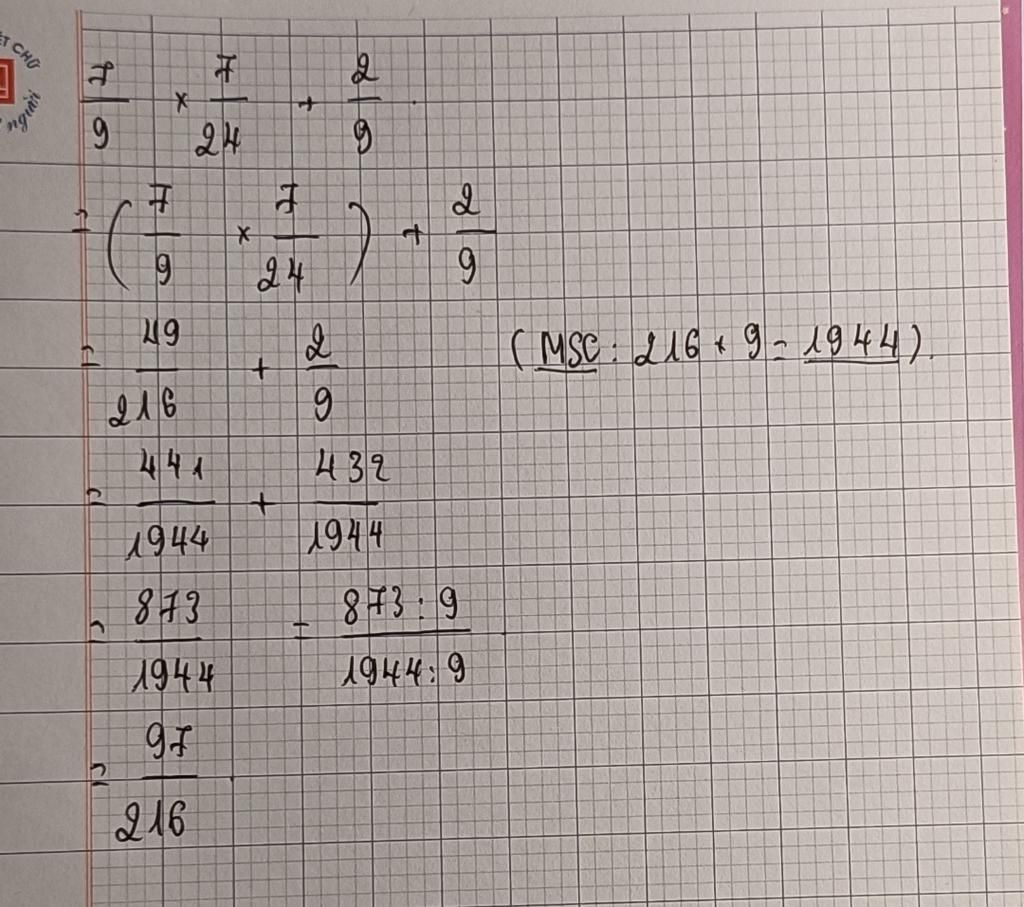 ẾT CHỮ
người
7/9 × 7/24 + 2/9
= (7/9 × 7/24) + 2/9
= 49/216 + 2/9 (MSC: 216 × 9 = 1944).
= 441/1944 + 432/1944
= 873/1944 = 873:9/1944:9
= 97/216